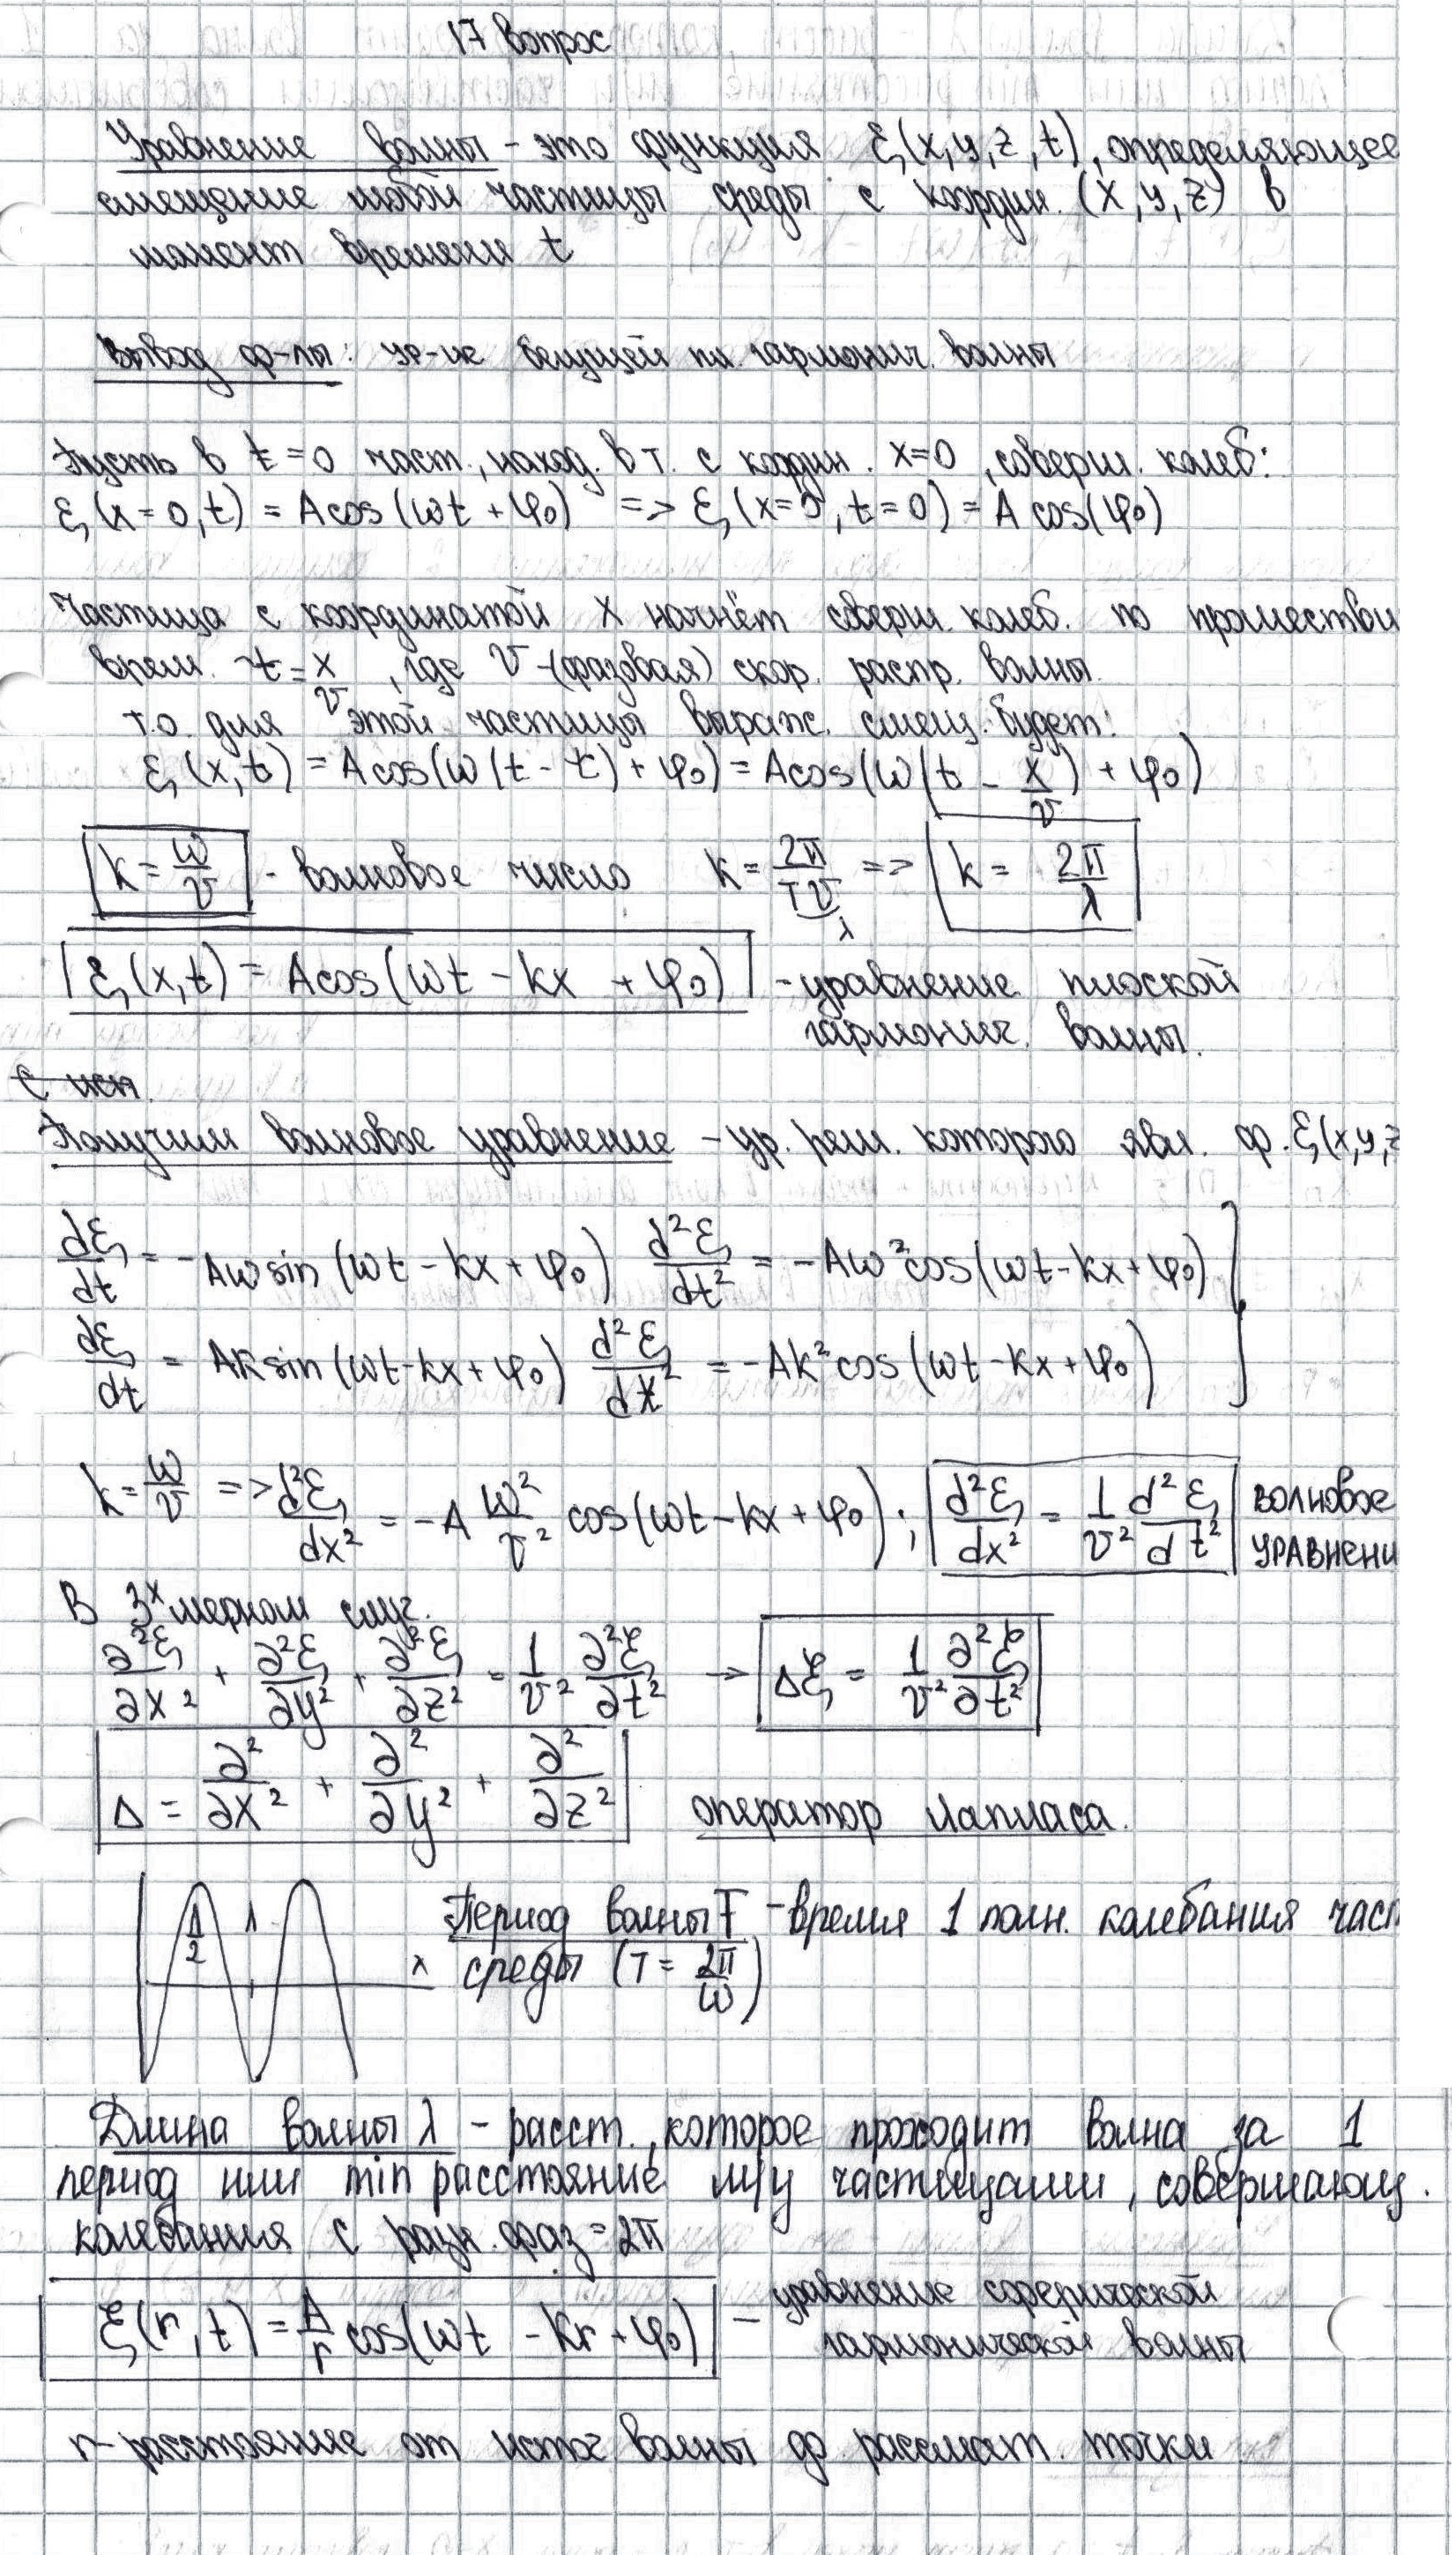 17 вопрос
Уравнение волны - это функция ξ(x,y,z,t), определяющее
смещение любой частицы среды с координ. (x,y,z) в
момент времени t
Вывод ф-лы: ур-ие бегущей пл. гармонич. волны
Пусть в t=0 част., наход. в т. с коордін. x=0, соверш. колеб:
ξ(x=0,t) = Acos(ωt+φ₀) => ξ(x=0,t=0) = A cos(φ₀)
Частица с координатой x начнёт соверш. колеб. по прошествии
врем. τ=x/v, где v-(фазовая) скор. распр. волны.
т.о. для этой частицы выраж. смещ. будет:
ξ(x,t) = Acos(ω(t-τ)+φ₀) = Acos(ω(t - x/v) + φ₀)
k=ω/v - волновое число k=2π/Tv λ => k= 2π/λ
ξ(x,t) = Acos(ωt - kx + φ₀) - уравнение плоской
гармонич. волны.
с исп.
Получим волновое уравнение - ур. реш. которого явл. ф. ξ(x,y,z
dξ/dt = -Aωsin(ωt-kx+φ₀) d²ξ/dt² = -Aω²cos(ωt-kx+φ₀)
dξ/dt = Aksin(ωt-kx+φ₀) d²ξ/dx² = -Ak²cos(ωt-kx+φ₀)
k=ω/v => d²ξ/dx² = -A ω²/v² cos(ωt-kx+φ₀); d²ξ/dx² = 1/v² d²ξ/dt² волновое
уравнени
В 3х мерном случ.
∂²ξ/∂x² + ∂²ξ/∂y² + ∂²ξ/∂z² = 1/v² ∂²ξ/∂t² → Δξ = 1/v² ∂²ξ/∂t²
Δ = ∂²/∂x² + ∂²/∂y² + ∂²/∂z² оператор Лапласа.
λ/2 λ Период волны T - время 1 полн. колебания част
x среды (T = 2π/ω)
Длина волны λ - расст., которое проходит волна за 1
период или min расстояние м/у частицами, совершающ.
колебания с разн. фаз = 2π
ξ(r,t) = A/r cos(ωt - kr + φ₀) - уравнение сферической
гармонической волны
r - расстояние от источ волны до рассмат. точки